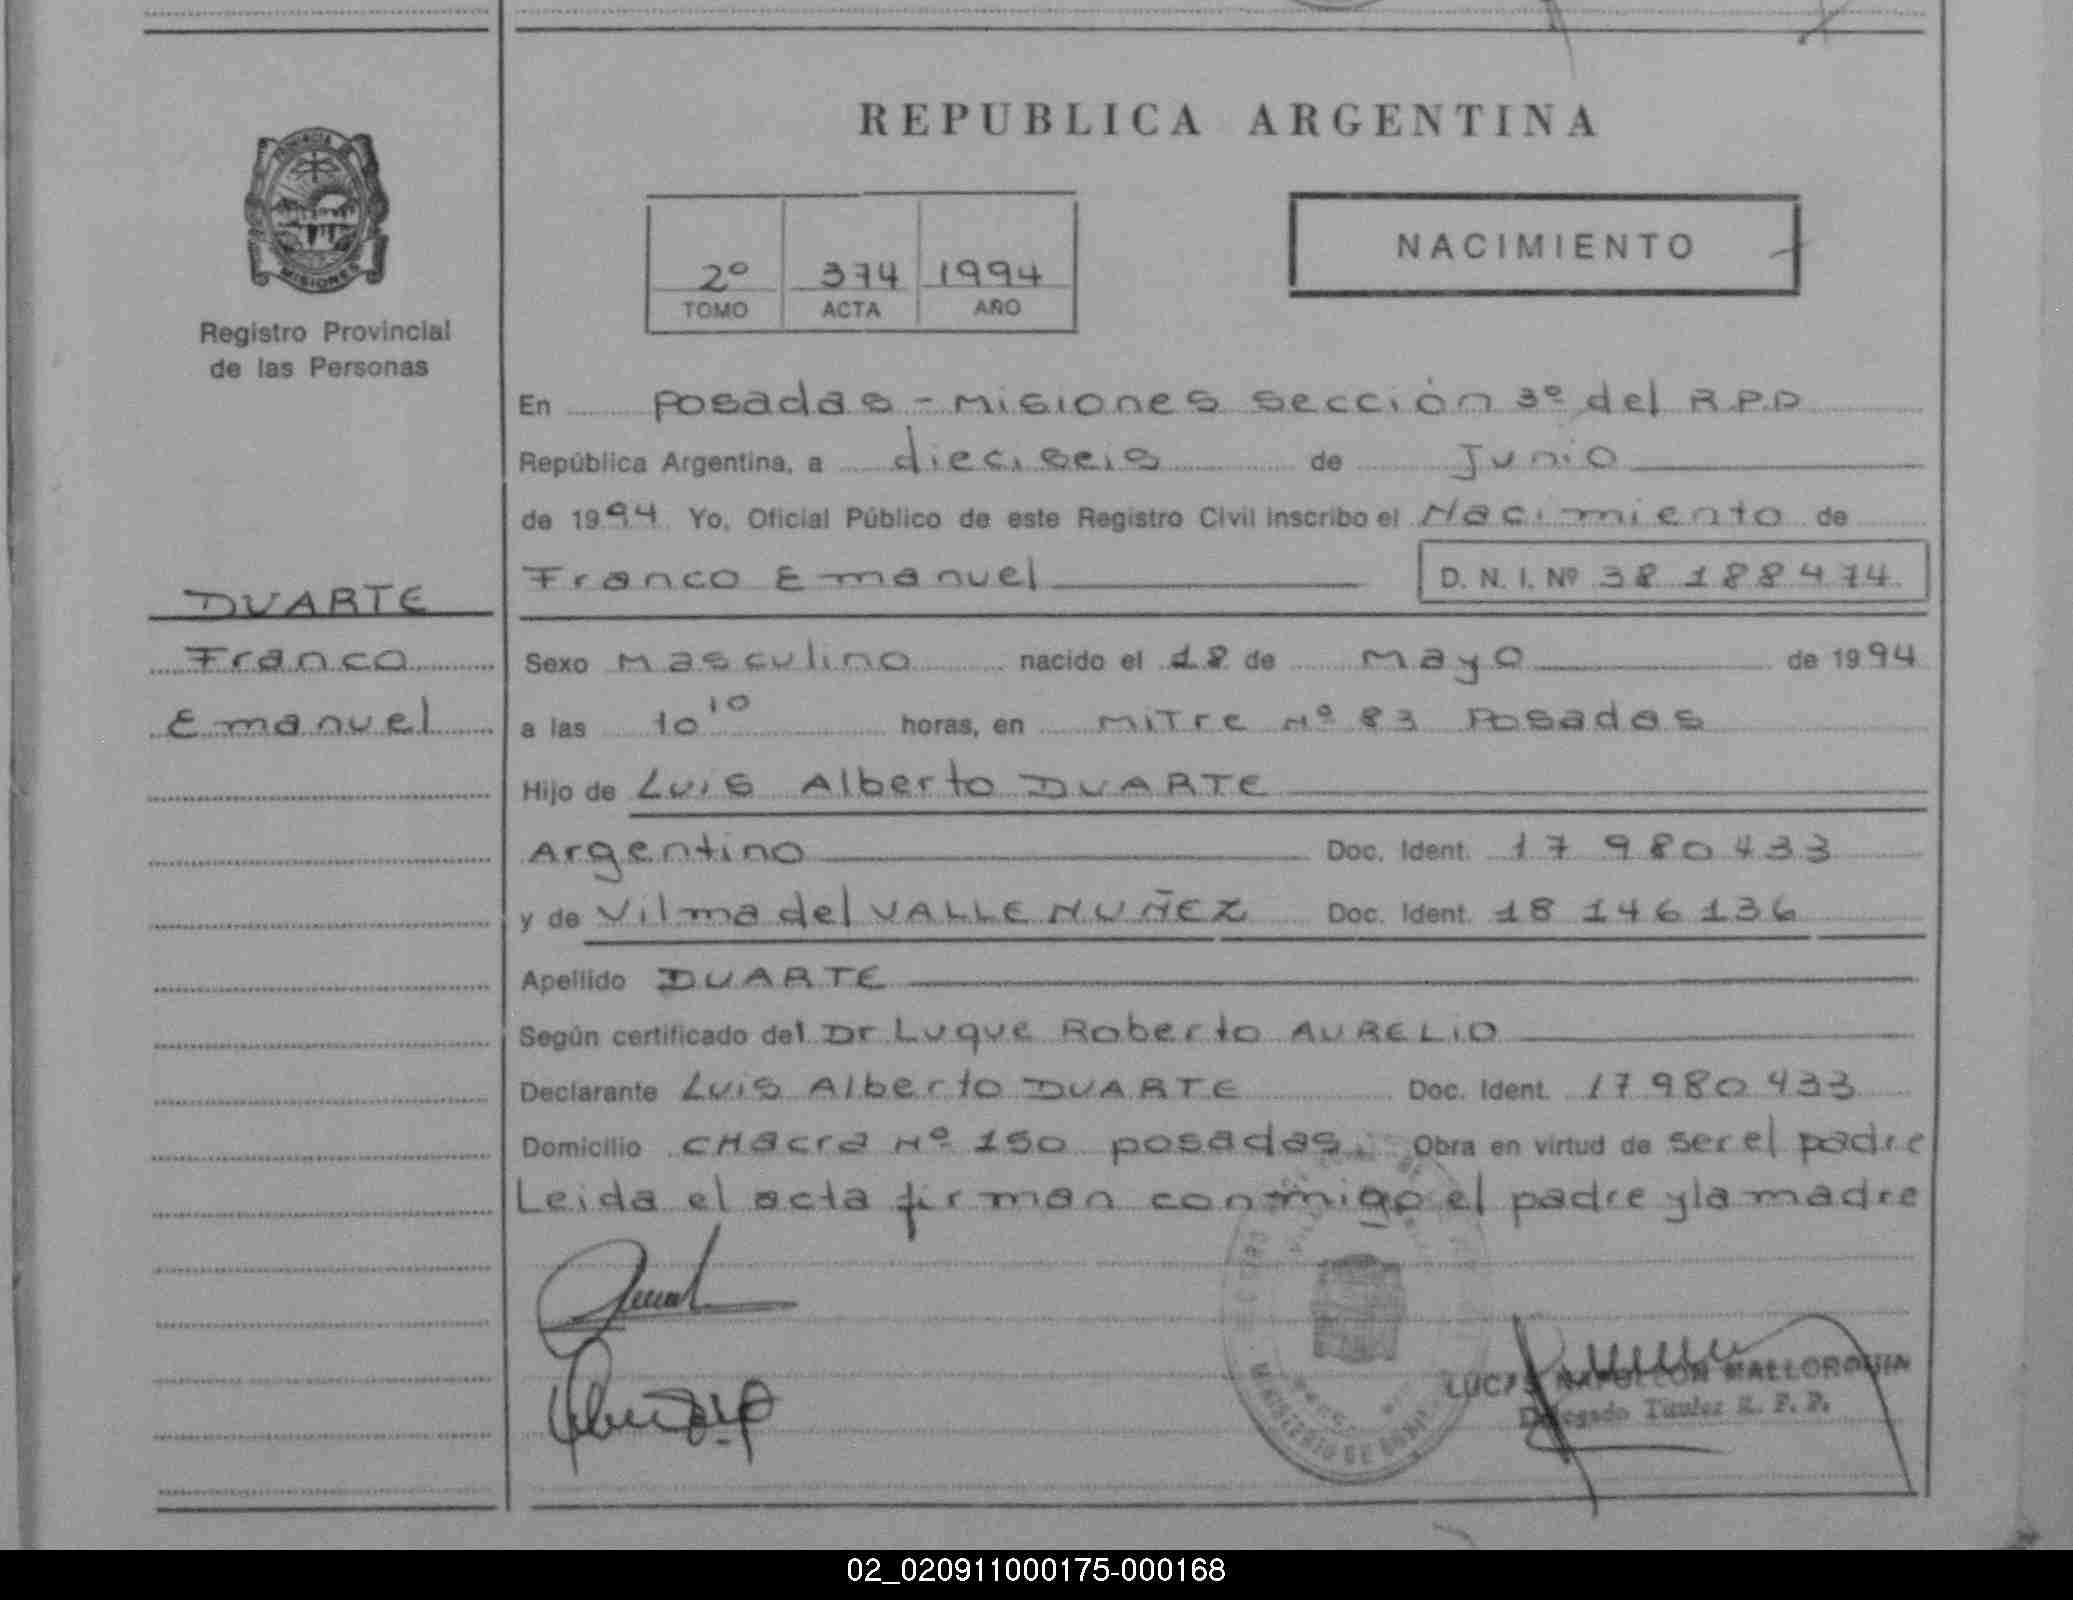 REPUBLICA ARGENTINA
PROVINCIA DE
MISIONES
Registro Provincial
de las Personas
2º 374 1994
TOMO ACTA AÑO
NACIMIENTO
En posadas - Misiones sección 3º del R.P.P
República Argentina, a dieciseis de Junio
de 1994 Yo, Oficial Público de este Registro Civil inscribo el Nacimiento de
Franco Emanuel D. N. I. Nº 38 188 474
DUARTE
Franco
Emanuel
Sexo Masculino nacido el 18 de mayo de 1994
a las 10 10 horas, en MITre Nº 83 Posadas
Hijo de Luis Alberto DUARTE
Argentino Doc. Ident. 17 980 433
y de Vilma del VALLE NUÑEZ Doc. Ident. 18 146 136
Apellido DUARTE
Según certificado del Dr Luque Roberto AURELIO
Declarante Luis Alberto DUARTE Doc. Ident. 17 980 433
Domicilio CHacra Nº 150 posadas. Obra en virtud de ser el padre
Leida el acta firman conmigo el padre y la madre
LUCAS NAPOLEON MALLORQUIN
Delegado Titular R. P. P.
MINISTERIO DE
02_020911000175-000168